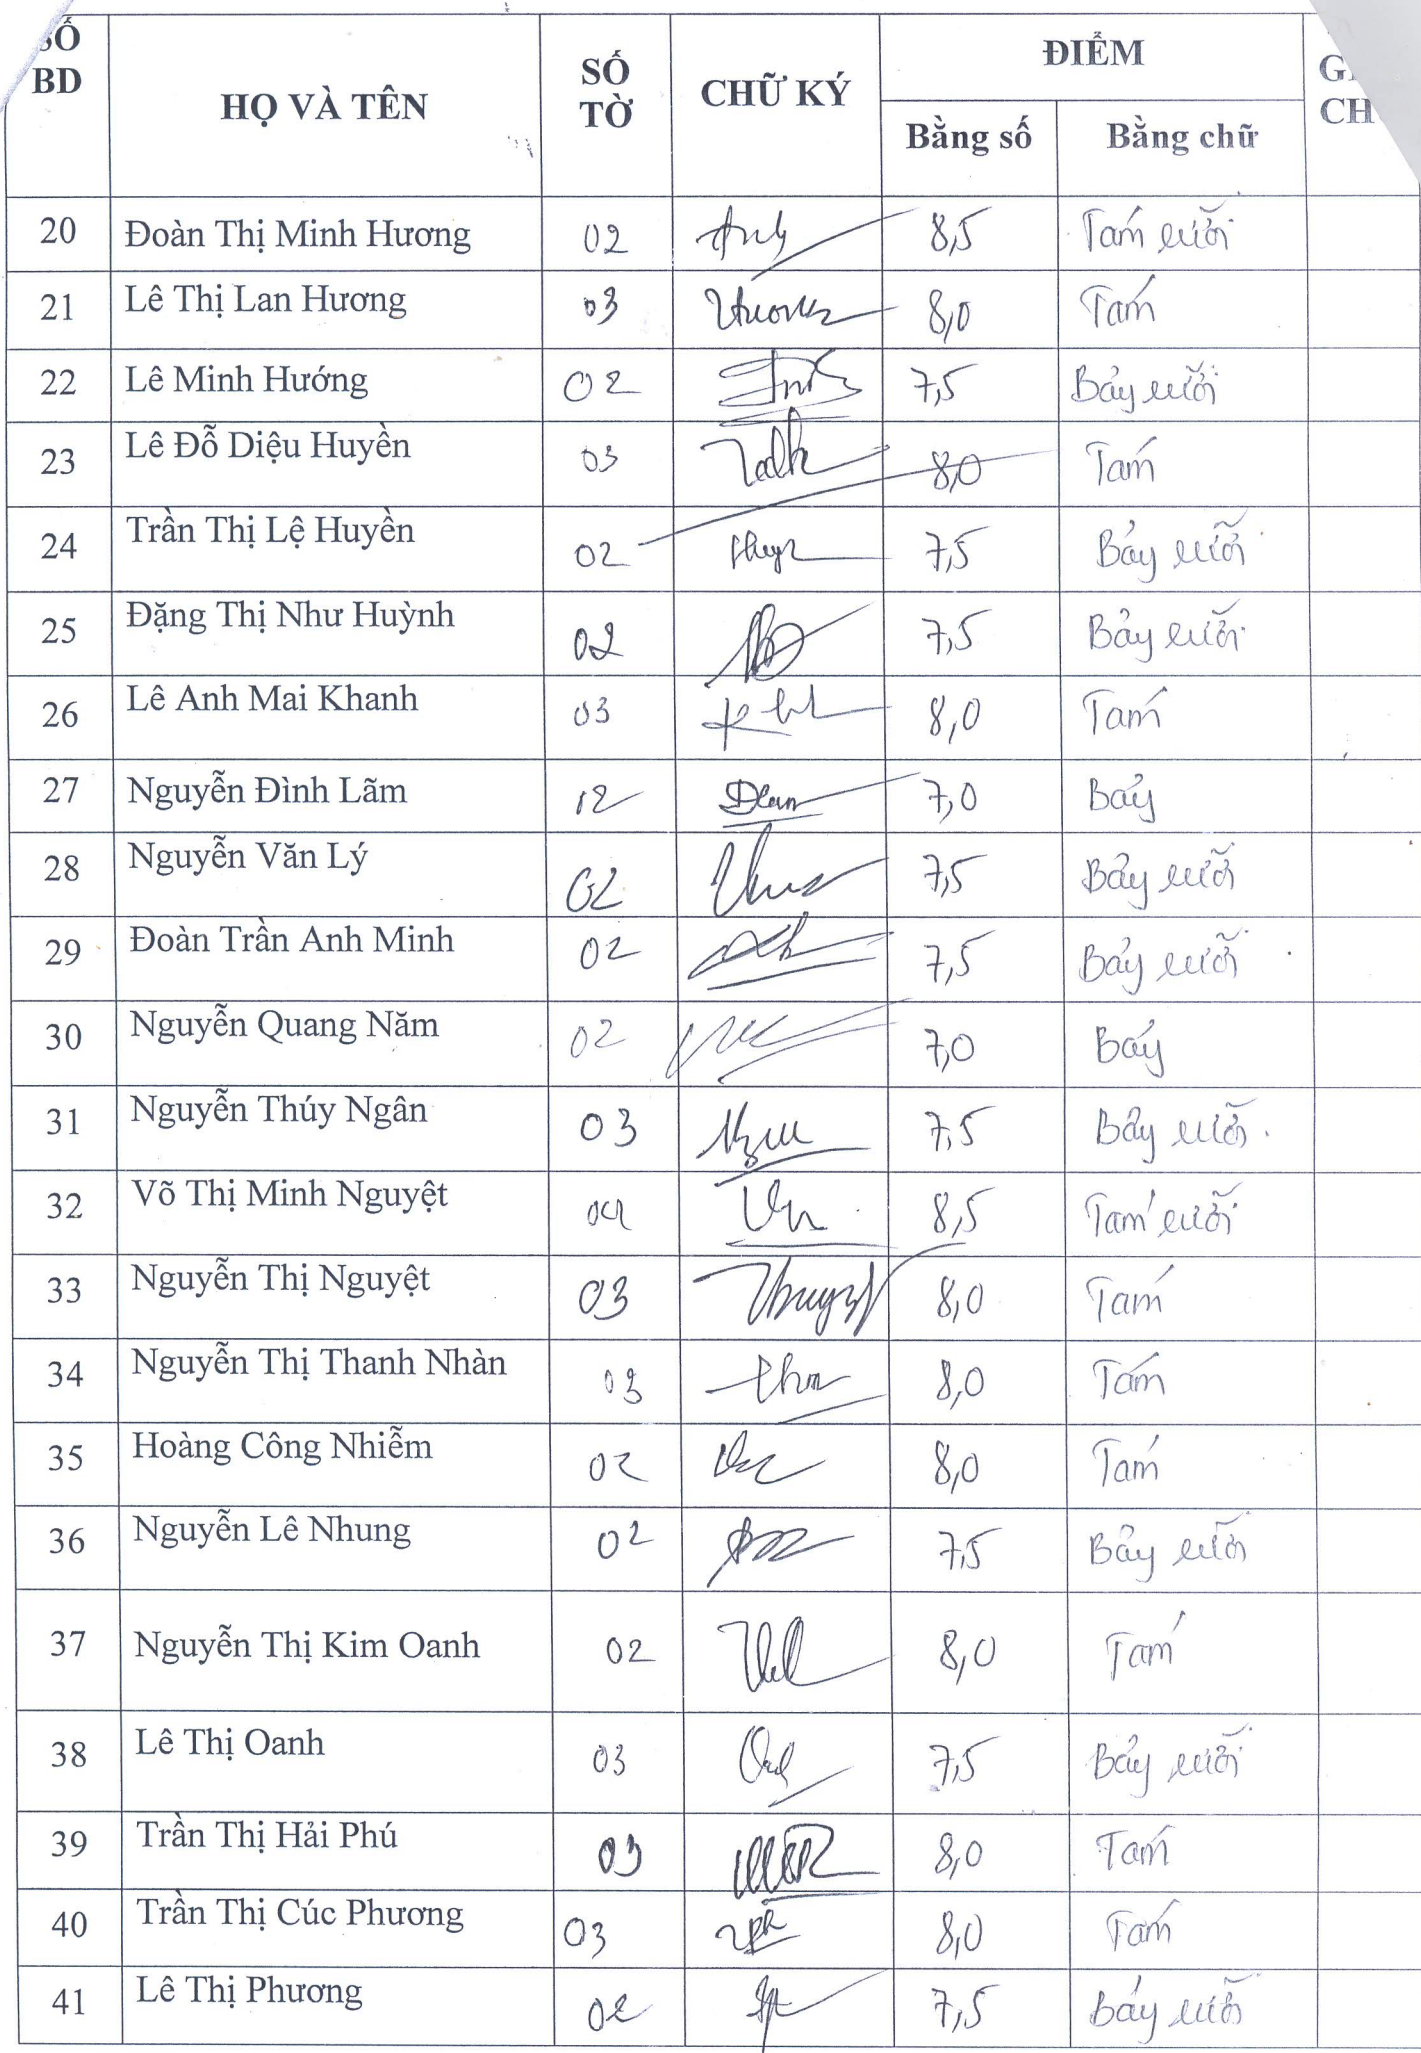 SỐ BD HỌ VÀ TÊN SỐ TỜ CHỮ KÝ ĐIỂM
Bằng số Bằng chữ
20 Đoàn Thị Minh Hương 02 8,5 Tám rưỡi
21 Lê Thị Lan Hương 03 8,0 Tám
22 Lê Minh Hướng 02 7,5 Bảy rưỡi
23 Lê Đỗ Diệu Huyền 03 8,0 Tám
24 Trần Thị Lệ Huyền 02 7,5 Bảy rưỡi
25 Đặng Thị Như Huỳnh 02 7,5 Bảy rưỡi
26 Lê Anh Mai Khanh 03 8,0 Tám
27 Nguyễn Đình Lãm 02 7,0 Bảy
28 Nguyễn Văn Lý 02 7,5 Bảy rưỡi
29 Đoàn Trần Anh Minh 02 7,5 Bảy rưỡi
30 Nguyễn Quang Năm 02 7,0 Bảy
31 Nguyễn Thúy Ngân 03 7,5 Bảy rưỡi
32 Võ Thị Minh Nguyệt 04 8,5 Tám rưỡi
33 Nguyễn Thị Nguyệt 03 8,0 Tám
34 Nguyễn Thị Thanh Nhàn 03 8,0 Tám
35 Hoàng Công Nhiễm 02 8,0 Tám
36 Nguyễn Lê Nhung 02 7,5 Bảy rưỡi
37 Nguyễn Thị Kim Oanh 02 8,0 Tám
38 Lê Thị Oanh 03 7,5 Bảy rưỡi
39 Trần Thị Hải Phú 03 8,0 Tám
40 Trần Thị Cúc Phương 03 8,0 Tám
41 Lê Thị Phương 02 7,5 Bảy rưỡi